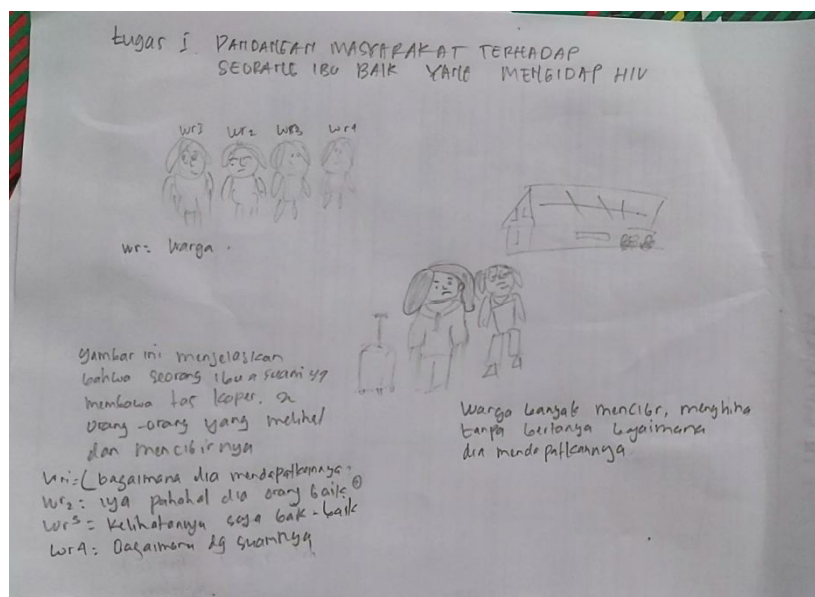 tugas I PANDANGAN MASYARAKAT TERHADAP
SEORANG IBU BAIK YANG MENGIDAP HIV
wr1 wr2 wr3 wr4
wr = Warga.
gambar ini menjelaskan
bahwa seorang ibu & suami yg
membawa tas koper. &
orang-orang yang melihat
dan mencibirnya
wr1 = bagaimana dia mendapatkannya.
wr2 = iya pahahal dia orang baik
wr3 = kelihatannya saja baik-baik
wr4 = bagaimana dg suaminya
warga banyak mencibir, menghina
tanpa bertanya bagaimana
dia mendapatkannya